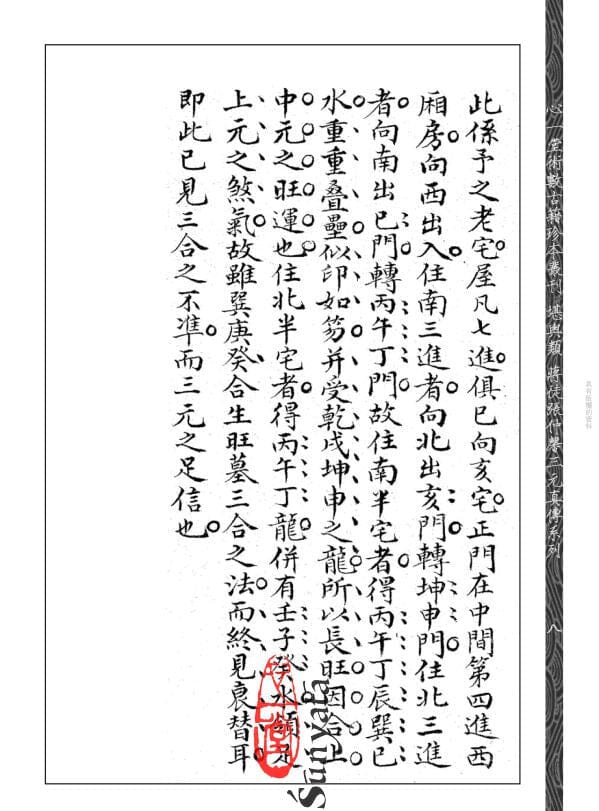 此係予之老宅屋凡七進俱巳向亥宅正門在中間第四進西
廂房向西出入住南三進者向北出亥門轉坤申門住北三進
者向南出巳門轉丙午丁門故住南半宅者得丙午丁辰巽巳
水重重叠壘似印如笏并受乾戌坤申之龍所以長旺因合上
中元之旺運也住北半宅者得丙午丁龍併有壬子癸水
上元之煞氣故雖巽庚癸合生旺墓三合之法而終見衰替耳
即此已見三合之不準而三元之足信也
心一堂術數古籍珍本叢刊 堪輿類 蔣徒張仲馨三元真傳系列
八
Śūnyatā